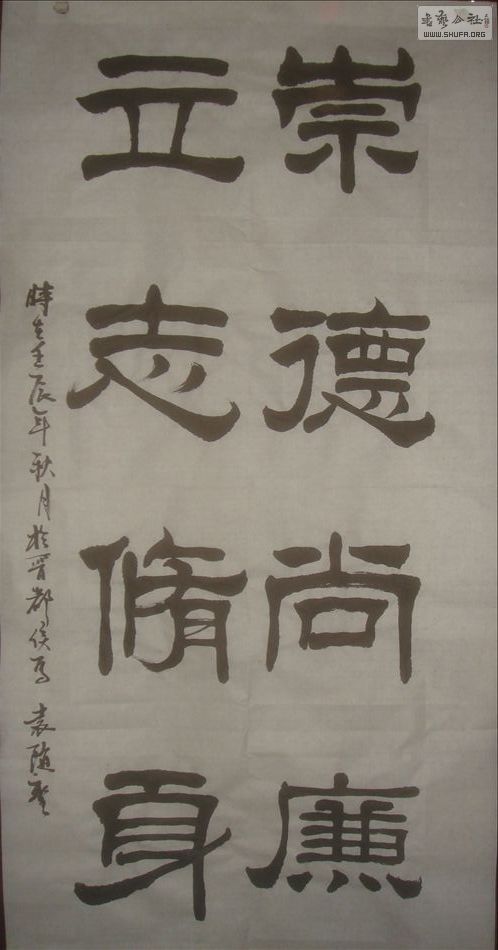 崇德尚廉
立志脩身
時在壬辰年秋月於晋都侯馬 袁随
书艺公社
WWW.SHUFA.ORG